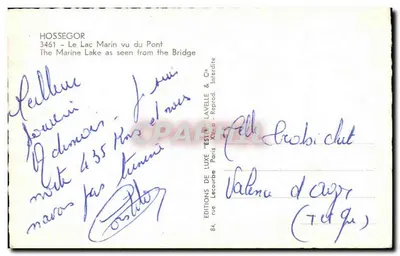 HOSSEGOR
3461 - Le Lac Marin vu du Pont
The Marine Lake as seen from the Bridge
Meilleur
souvenir
A demain - Je suis
mort 435 Kms et nous
navons pas terminé
EDITIONS DE LUXE "ESTEL" LAVELLE & Cie
84, rue Lecourbe Paris - Reprod. Interdite
Valence d'Agen
(T et G)